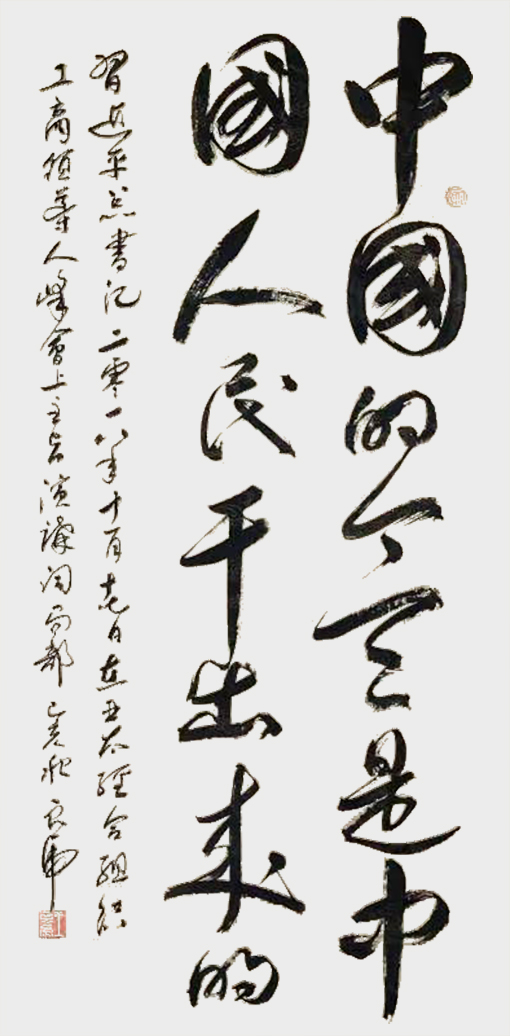 中國的今天是中
國人民干出来的
習近平总書记二零一八年十一月十七日在亚太經合組织
工商領導人峰會上主旨演講 己亥秋